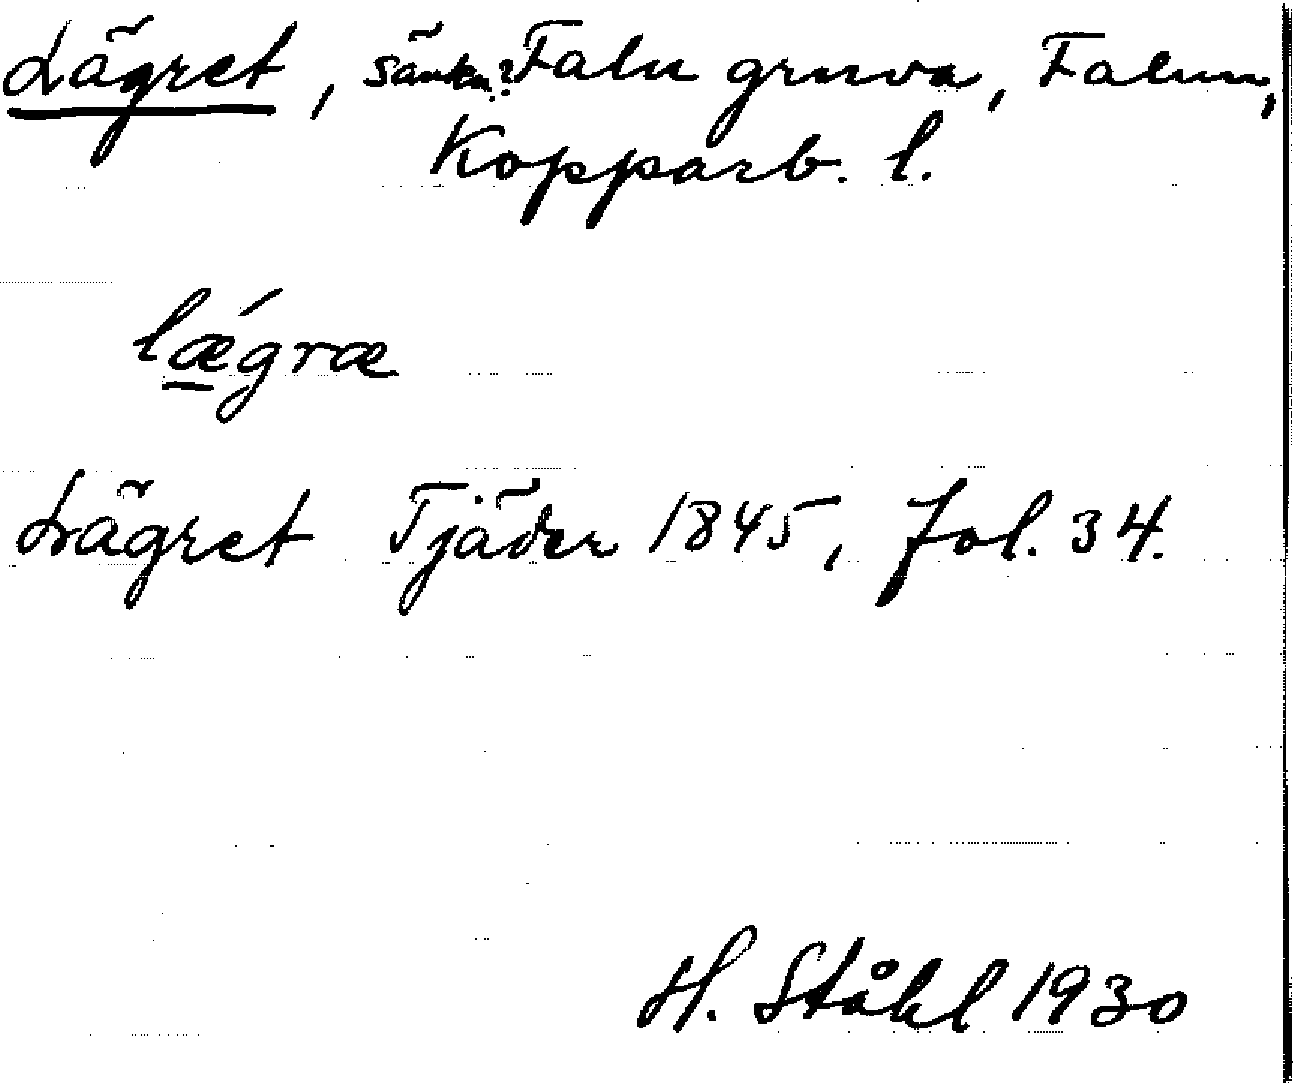 Lägret, sänkn.? Falu gruva, Falun,
Kopparb. l.
lǽgræ
Lägret Tjäder 1845, fol. 34.
H. Ståhl 1930